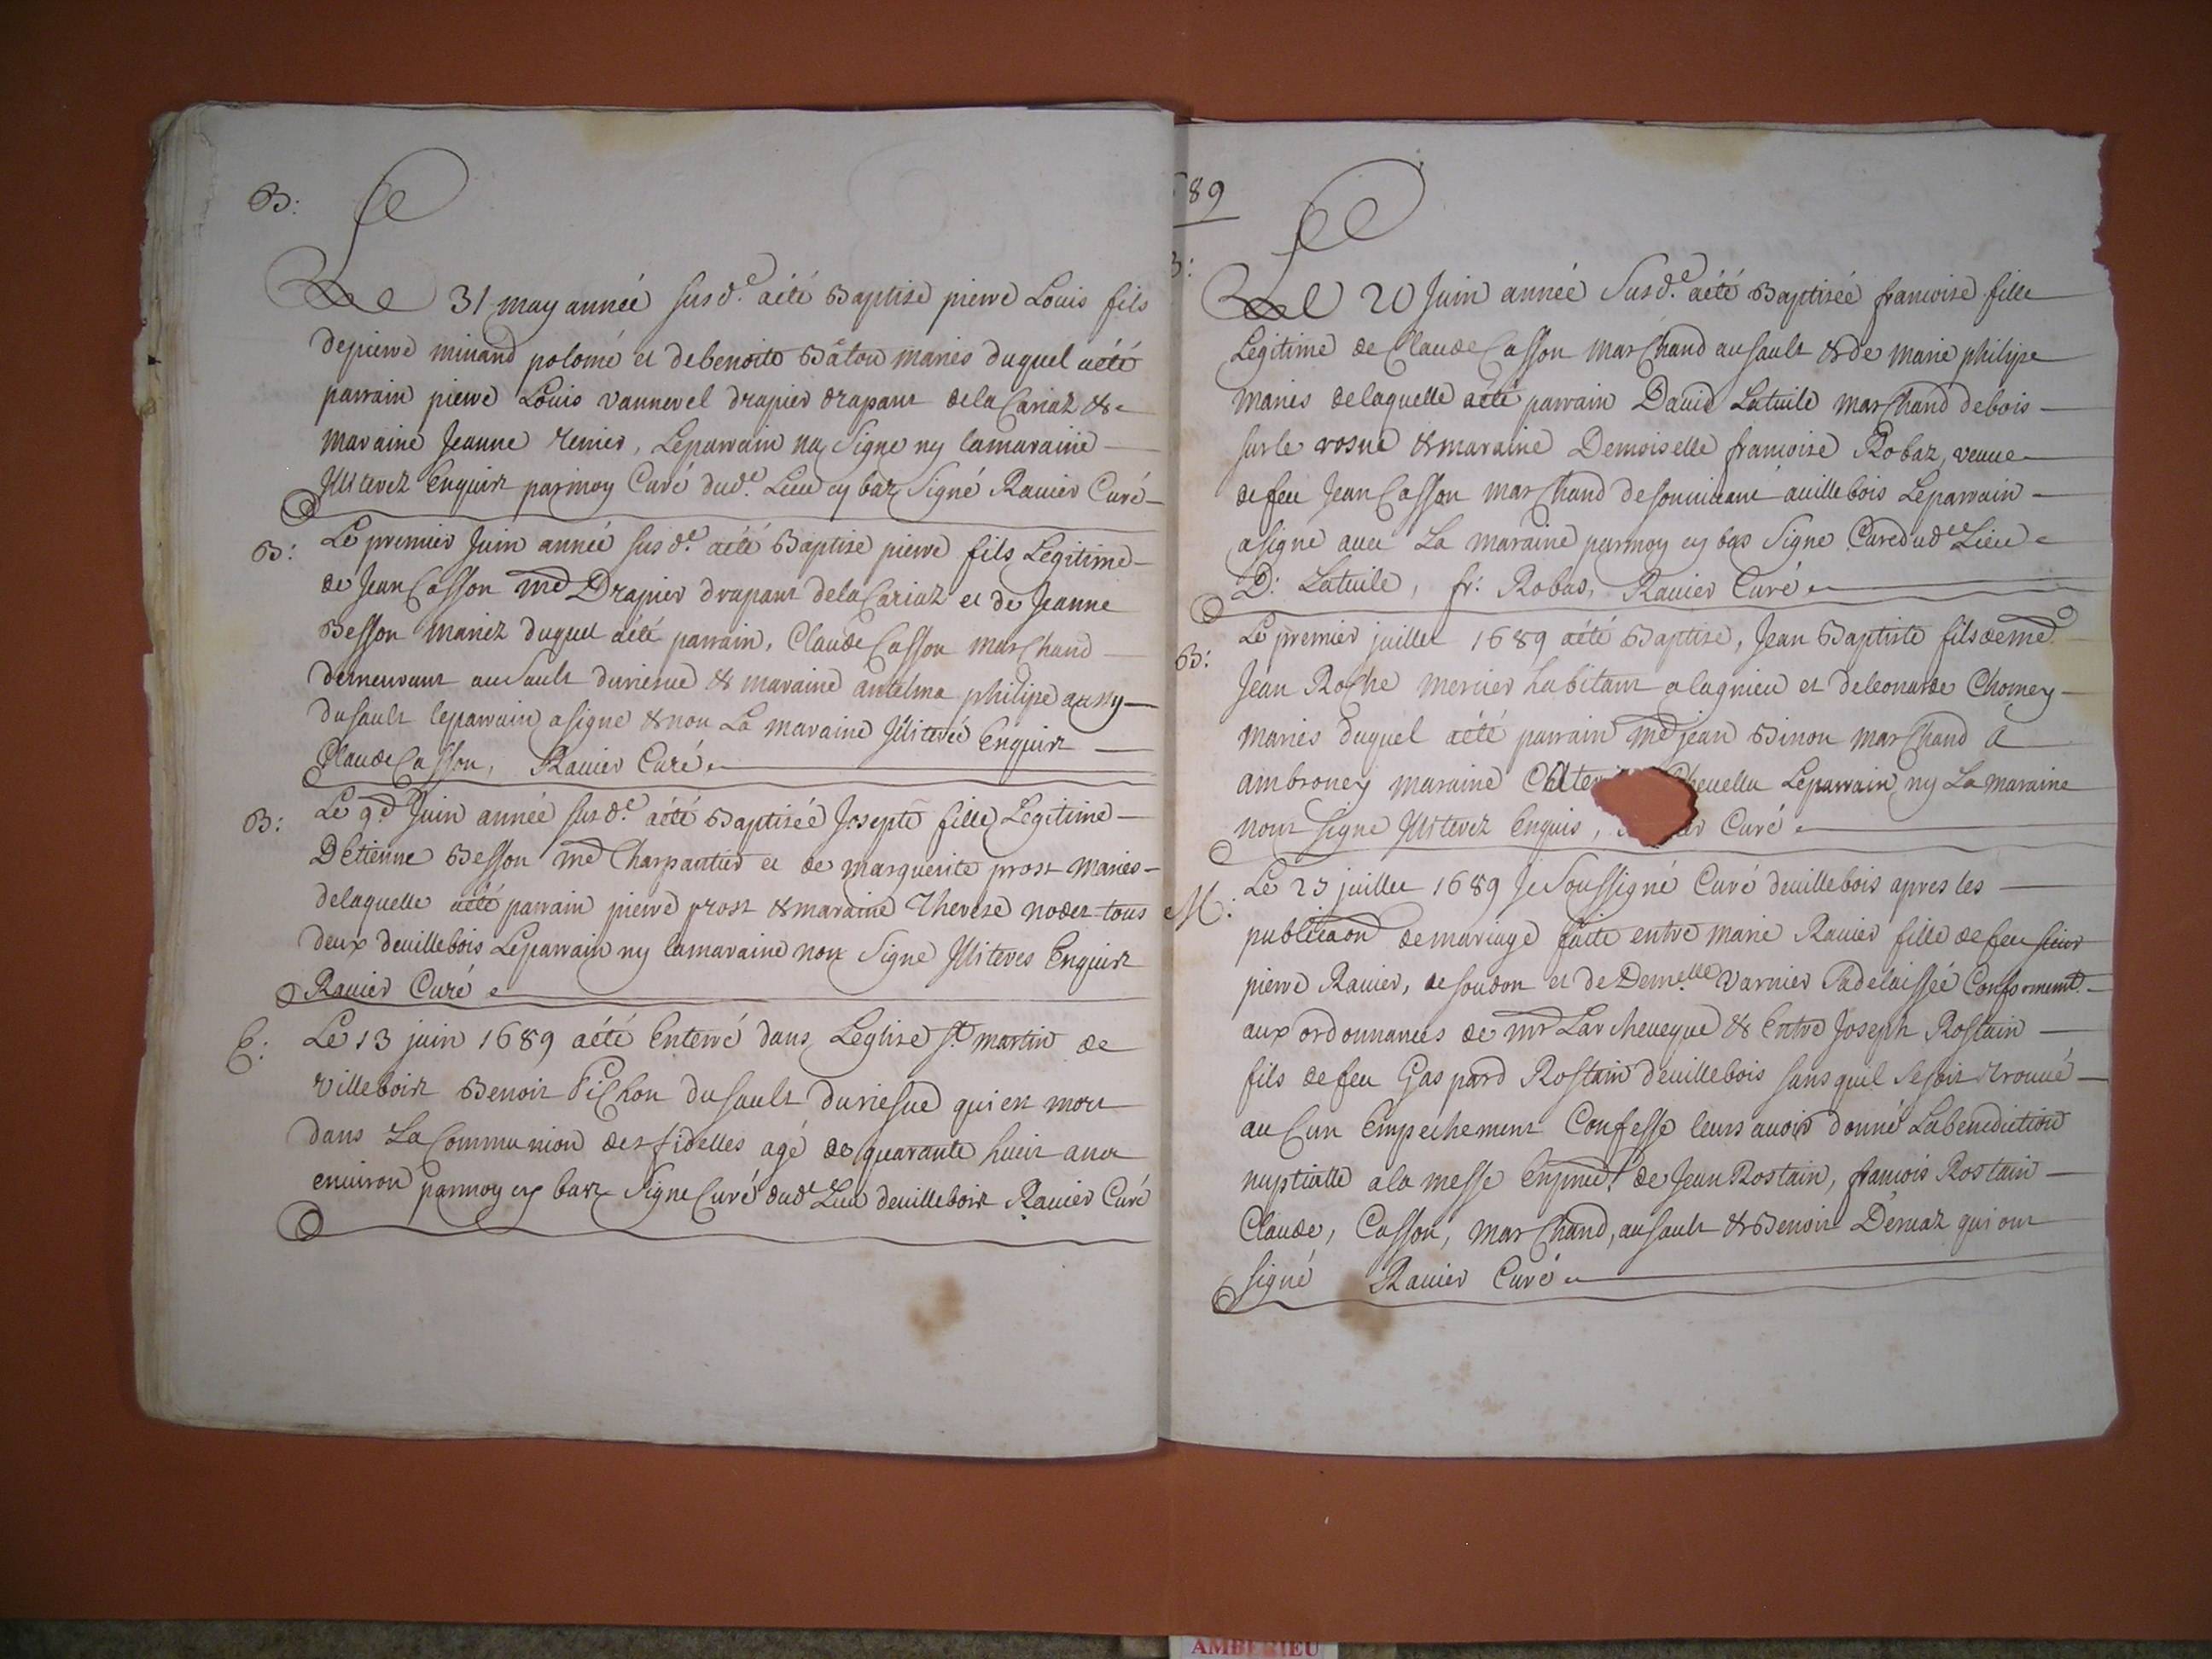 B:
Le 31 may année susd.e aété Baptisé pierre Louis fils
depierre minand polomé et debenoite Bâton mariés duquel aété
parrain pierre Louis vannerel drapier drapant dela Cariaz &
maraine Jeanne renier, Leparrain nay Signe ny lamaraine
Illiterez Enquis parmoy Curé dud.e Lieu cy bas Signé Ravier Curé
B: Le premier Juin année susd.e aété Baptisé pierre fils Legitime
de Jean Casson md Drapier drapant dela Cariaz et de Jeanne
Besson mariez duquel aété parrain, Claude Casson marchand
demeurant au Sault & maraine antelma philipe aussy
dusault leparrain a signe & non La maraine Illiteré Enquis
Claude Casson, Ravier Curé
B: Le 9.e Juin année susd.e aété Baptisée Josepte fille Legitime
DEtienne Besson me Charpantier et de marguerite prost mariés
delaquelle aété parrain pierre prost & maraine Therese nodet tous
deux deuillebois Leparrain ny lamaraine non Signe Illiteres Enquis
Ravier Curé
E: Le 13 juin 1689 aété Enterré dans Leglise St martin de
villebois Benoit Pichon dusault qui est mort
dans La Communion des fidelles agé de quarante huit ans
enuiron parmoy cy bas Signe Curé dud.e Lieu deuillebois Ravier Curé
89
B:
Le 20 Juin année Susd.e aété Baptisée francoise fille
Legitime de Claude Casson marchand ausault & de marie philipe
mariés delaquelle aété parrain Dauid Latuile marchand debois
surle rosne & maraine Demoiselle francoise Robaz, veuue
defeu Jean Casson marchand desonuiuant auillebois Leparrain
asigne auec La maraine parmoy cy bas Signe Curé dude Lieu
D: Latuile, fr: Robas, Ravier Curé
B: Le premier juillet 1689 aété Baptisé, Jean Baptiste fils deme
Jean Roche mercier habitant alagnieu et deleonarde Chomey
mariés duquel aété parrain me jean Binon marchand a
ambroney maraine Leparrain ny La maraine
nont signe Illiterez Enquis, Curé
M: Le 23 juillet 1689 Je Soussigné Curé deuillebois apres les
publicaon demariage faite entre marie Ravier fille defeu sieur
pierre Ravier, de soudon et de Demelle Varnier Padelaissée Conformemt.
aux ordonnances de mr Larcheueque & Entre Joseph Rostain
fils defeu Gaspard Rostain deuillebois sans quil Sesoit trouué
aucun Empechement Confesse leurs auoir donné Labenediction
nuptialle ala messe Enpnce de Jean Rostain, francois Rostain
Claude, Casson, marchand, ausault & Benoit Deruaz qui ont
signé Ravier Curé
AMBERIEU